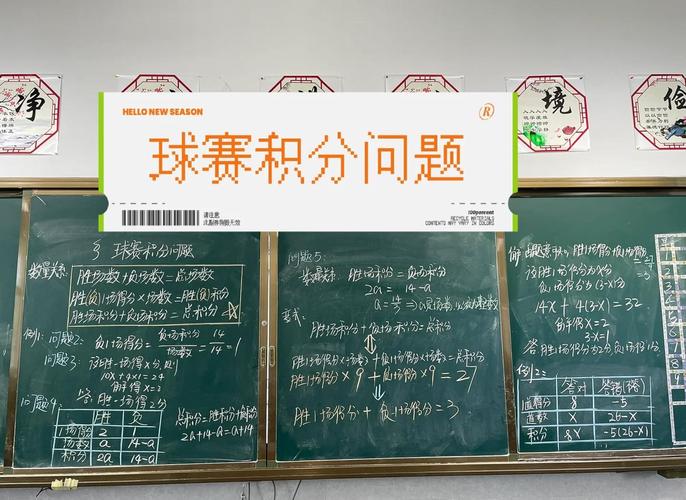 净
境
俭
HELLO NEW SEASON
®
球赛积分问题
请注意
此副券撕毁无效
100percent
RECYCLE MATERIALS
CONTENTS MAY VARY IN COLORS
球赛积分问题
数量关系:
胜场数+负场数=总场数
胜(负)1场得分×场数=胜(负)积分
胜场积分+负场积分=总积分
例1: 问题2:
负1场得分=负场积分/场数=14/14=1
问题3: 设胜一场得x分,则
10x+4×1=24
解得x=2
答:胜一场得2分
问题4:
胜 负
1场得分 2 1
场数 a 14-a
积分 2a 14-a
总积分=胜积分+负积分
2a+14-a=a+14
问题5:
数量关系: 胜场积分=负场积分
2a=14-a
胜场积分+负场积分=总积分
胜1场得分×场数+负1场得分×场数=总积分
胜1场得分×9+负1场得分×9=27
胜1场得分+负1场得分=3
设胜1场得分为x分
负1场得分为(3-x)分
14x+4(3-x)=32
解得x=2
3-x=1
答:胜1场得分为2分,负1场得1分.
例2:
答对 答错(不答)
1道得分 8 -5
道数 x 26-x
积分 8x -5(26-x)